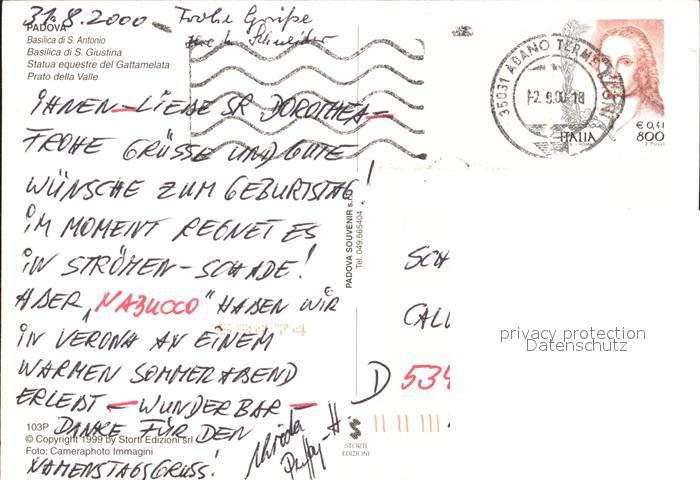 31.8.2000 - Frohe Grüße
Schneider
PADOVA
Basilica di S. Antonio
Basilica di S. Giustina
Statua equestre del Gattamelata
Prato della Valle
IHNEN - LIEBE SR DOROTHEA -
FROHE GRÜSSE UND GUTE
WÜNSCHE ZUM GEBURTSTAG!
IM MOMENT REGNET ES
IN STRÖMEN - SCHADE!
ABER „NABUCCO" HABEN WIR
IN VERONA AN EINEM
WARMEN SOMMERABEND
ERLEBT - WUNDERBAR -
DANKE FÜR DEN
NAMENSTAGSGRUSS!
103P
© Copyright 1999 by Storti Edizioni srl
Foto: Cameraphoto Immagini
PADOVA SOUVENIR s.r.l.
Tel. 049.665404
STORTI
EDIZIONI
35031 ABANO TERME
2.9.00-18
ITALIA
€ 0,41
800
SCH
CALL
D 534
privacy protection
Datenschutz